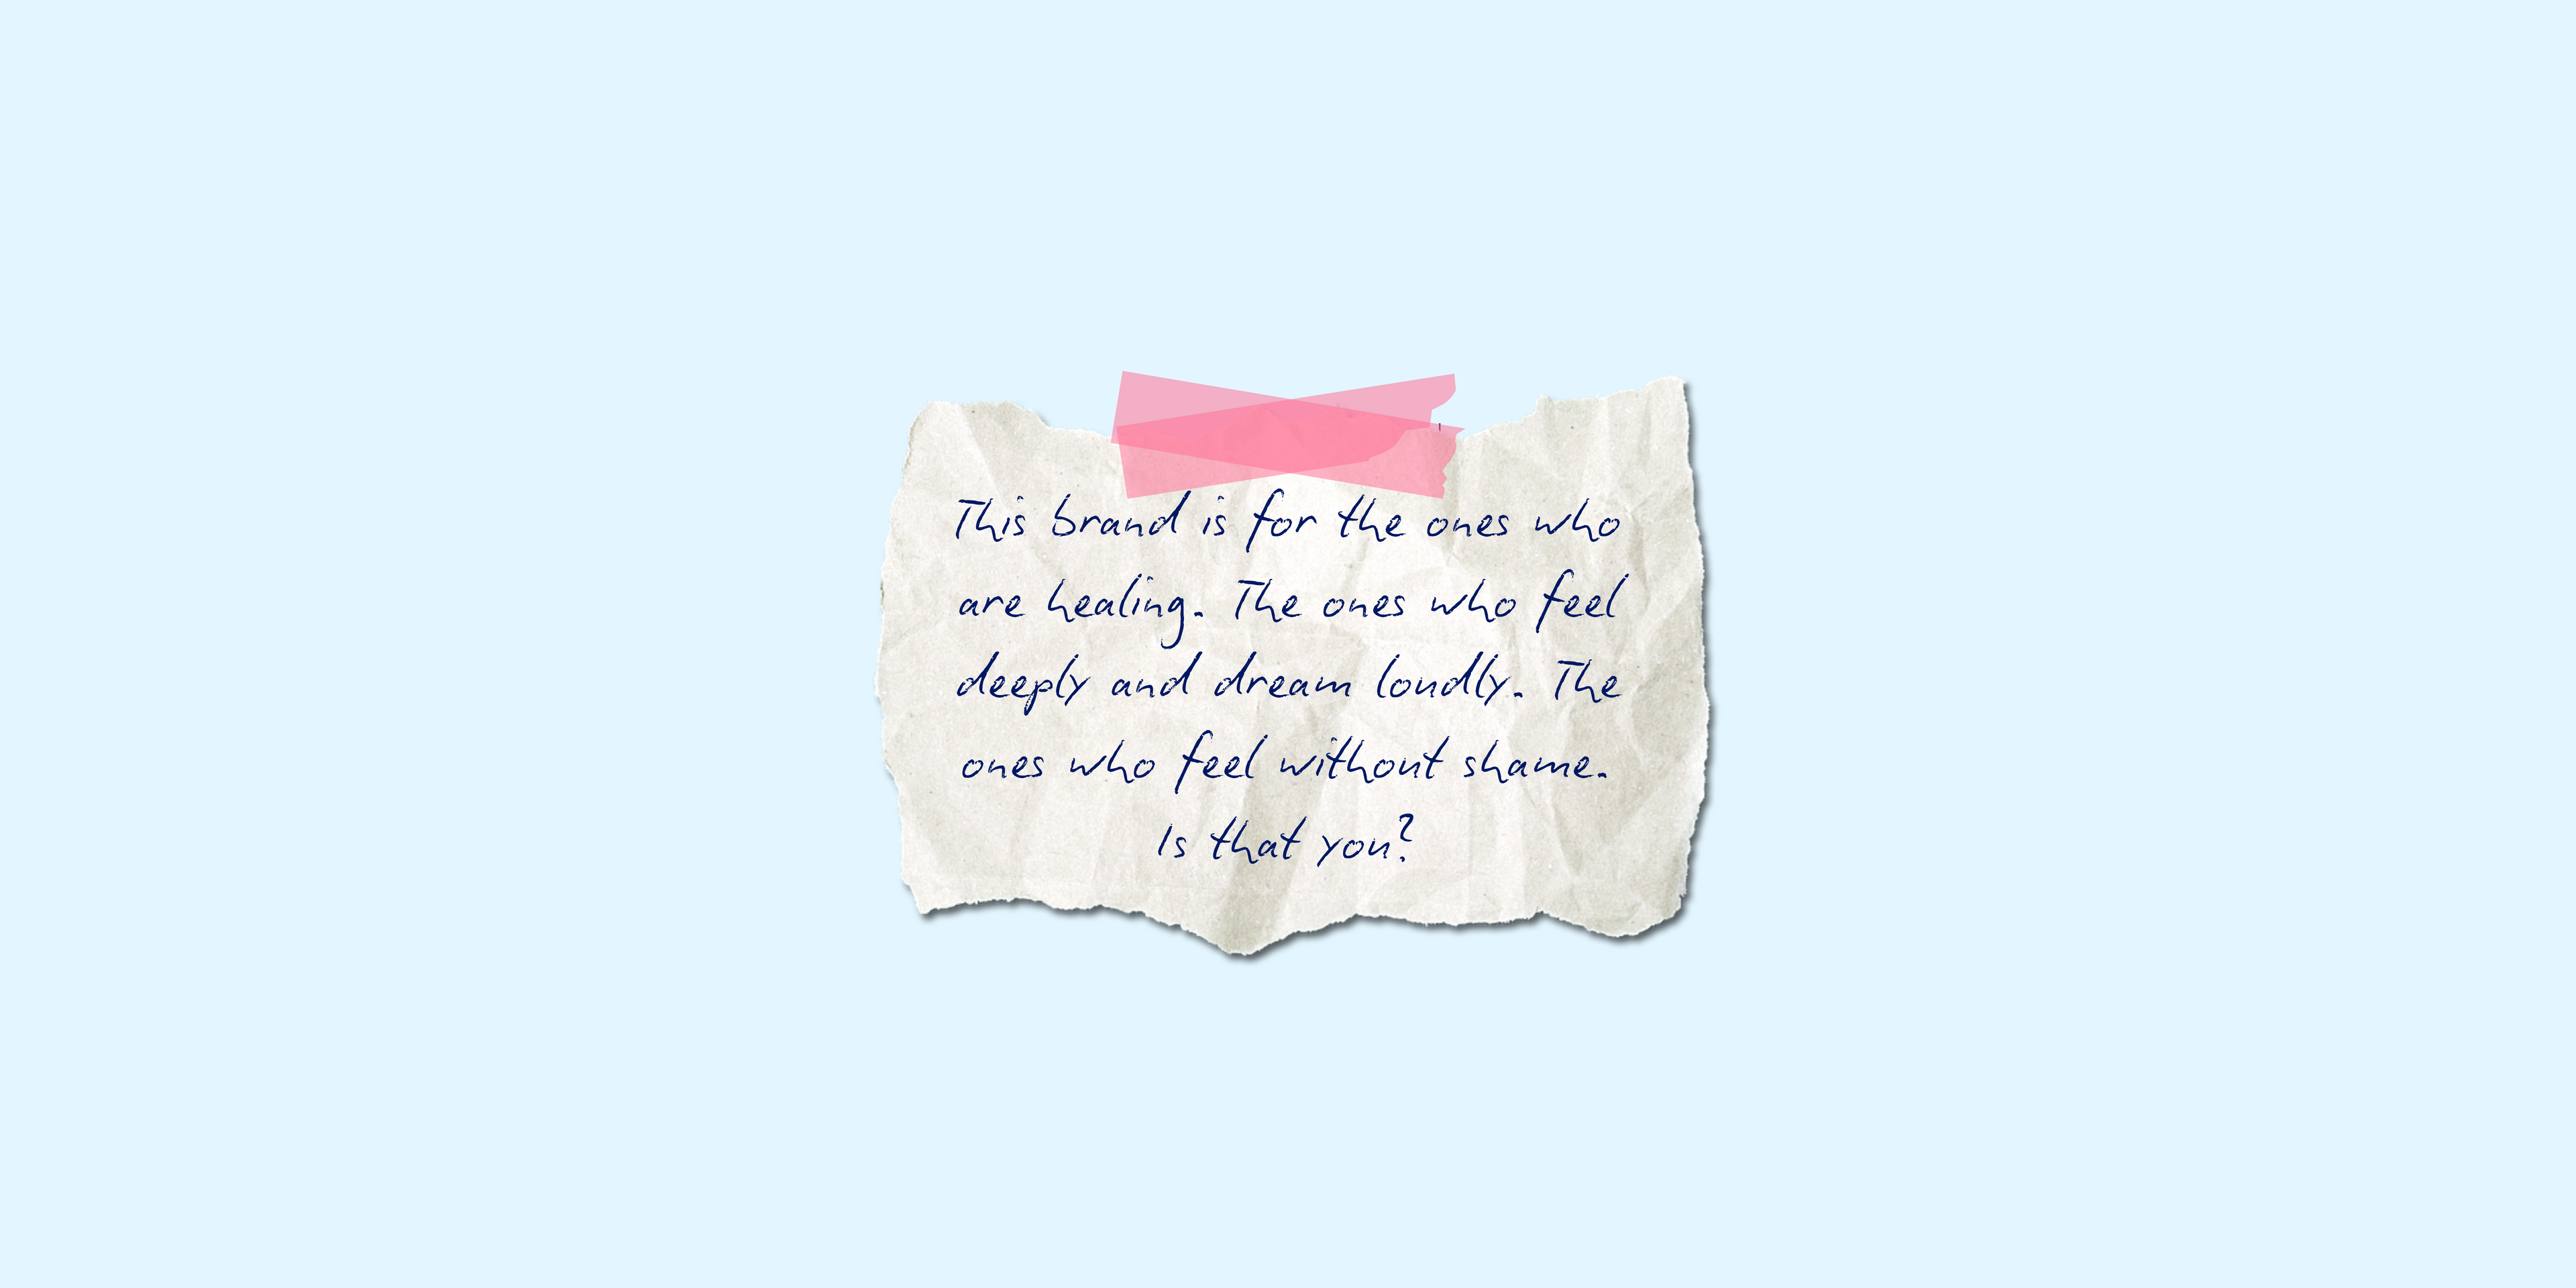 This brand is for the ones who
are healing. The ones who feel
deeply and dream loudly. The
ones who feel without shame.
Is that you?